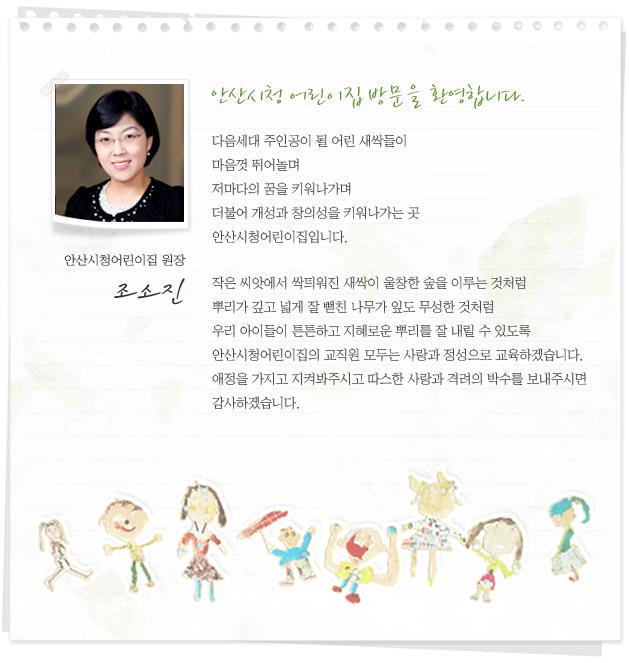 안산시청 어린이집 방문을 환영합니다.
다음세대 주인공이 될 어린 새싹들이
마음껏 뛰어놀며
저마다의 꿈을 키워나가며
더불어 개성과 창의성을 키워나가는 곳
안산시청어린이집입니다.
안산시청어린이집 원장
조소진
작은 씨앗에서 싹틔워진 새싹이 울창한 숲을 이루는 것처럼
뿌리가 깊고 넓게 잘 뻗친 나무가 잎도 무성한 것처럼
우리 아이들이 튼튼하고 지혜로운 뿌리를 잘 내릴 수 있도록
안산시청어린이집의 교직원 모두는 사랑과 정성으로 교육하겠습니다.
애정을 가지고 지켜봐주시고 따스한 사랑과 격려의 박수를 보내주시면
감사하겠습니다.